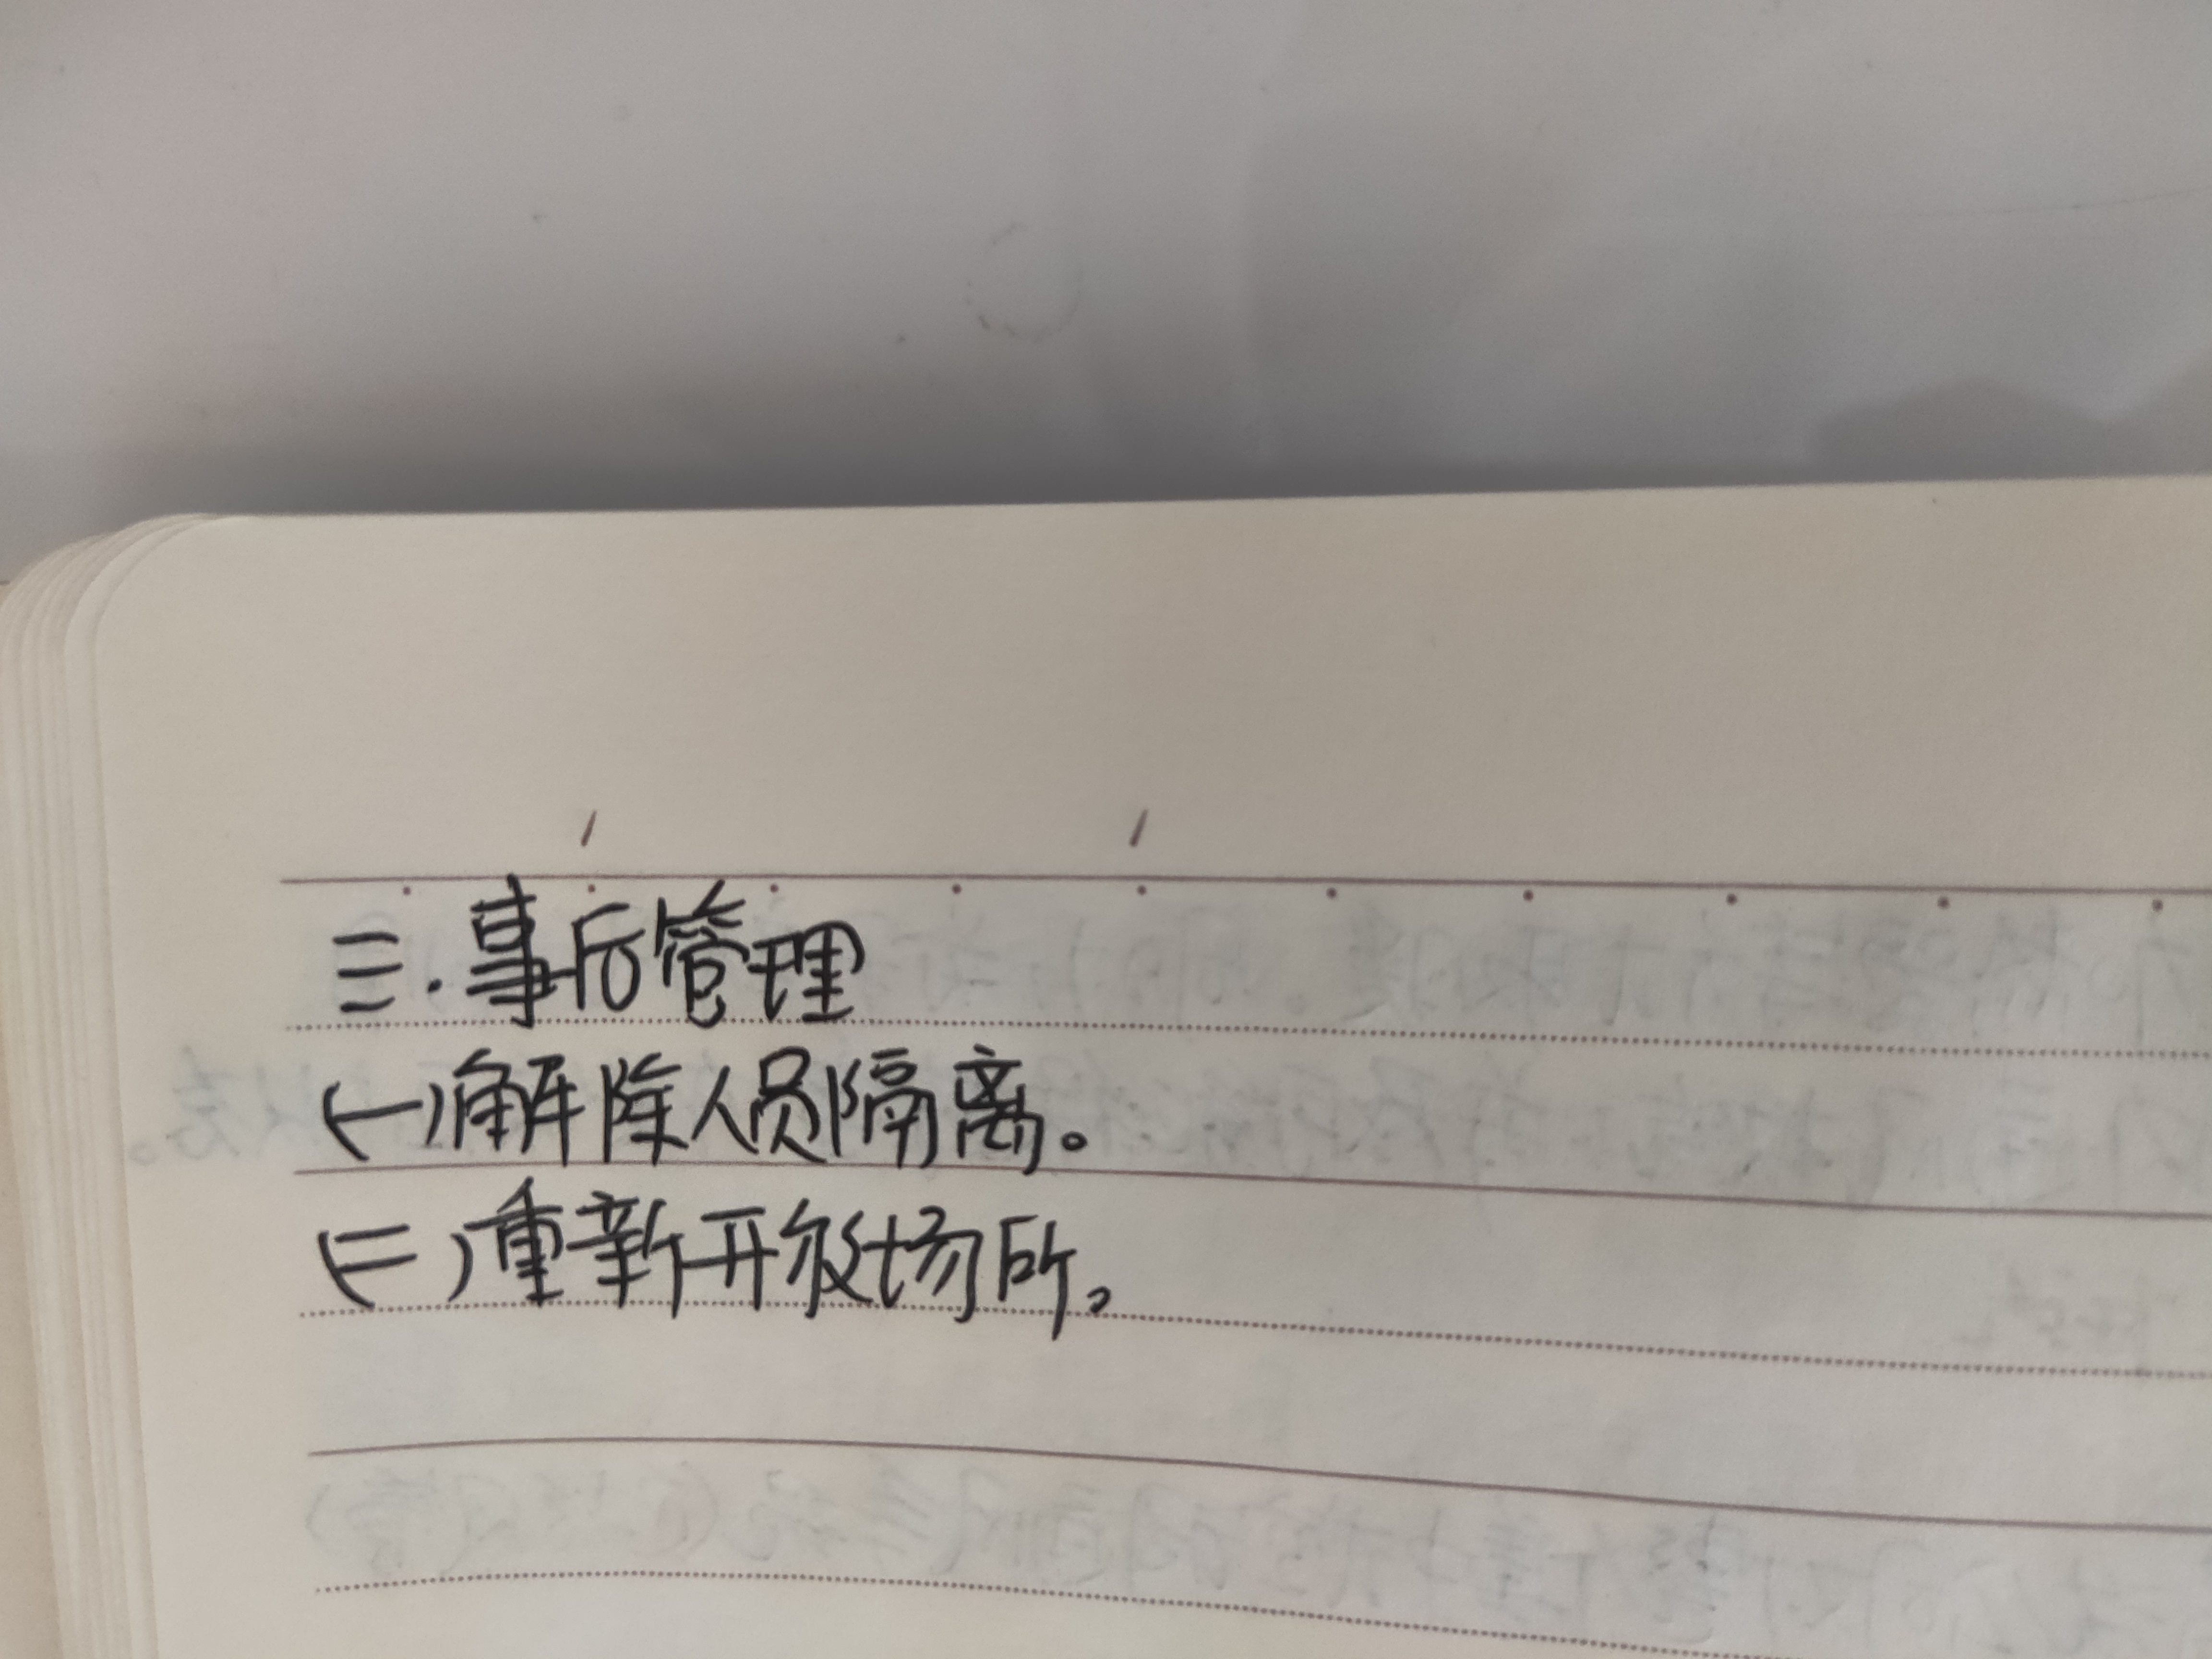 三.事后管理
(一)解除人员隔离。
(二)重新开放场所。